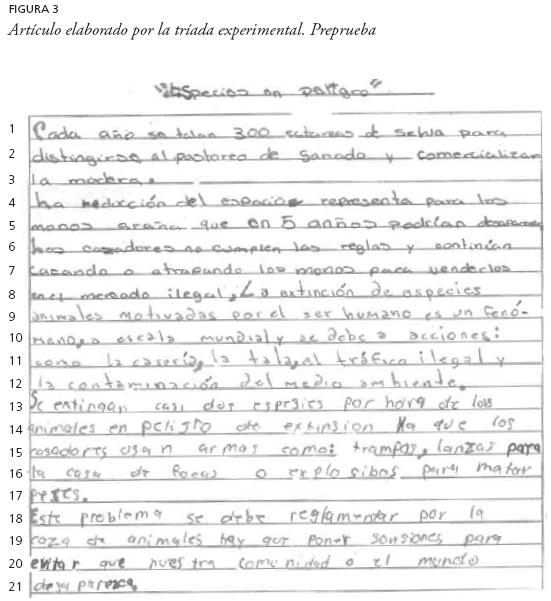 FIGURA 3
Artículo elaborado por la tríada experimental. Preprueba
"Especies en peligro"
1 Cada año se talan 300 ectareas de selva para
2 distingirse al pastoreo de ganado y comercializar
3 la madera.
4 ha reducción del espacio representa para los
5 monos araña que en 5 anños podrían
6 hos cazadores no cumplen las reglas y continian
7 cacando o atrapando los monos para venderlos
8 en el mercado ilegal, La extinción de especies
9 animales motivadas por el ser humano es un fenó-
10 meno, a escala mundial y se debe a acciones:
11 como la casería, la tala, el tráfico ilegal y
12 la contaminación del medio ambiente.
13 Se extingan casi dos espesies por hora de los
14 animales en peligro de extinsion Ya que los
15 casadores usan armas como: trampas, lanzas para
16 la casa de focas o explosibos para matar
17 peses.
18 Este problema se debe reglamentar por la
19 caza de animales hay que poner sonsiones para
20 evitar que nuestra comunidad o el mundo
21 desaparezca.